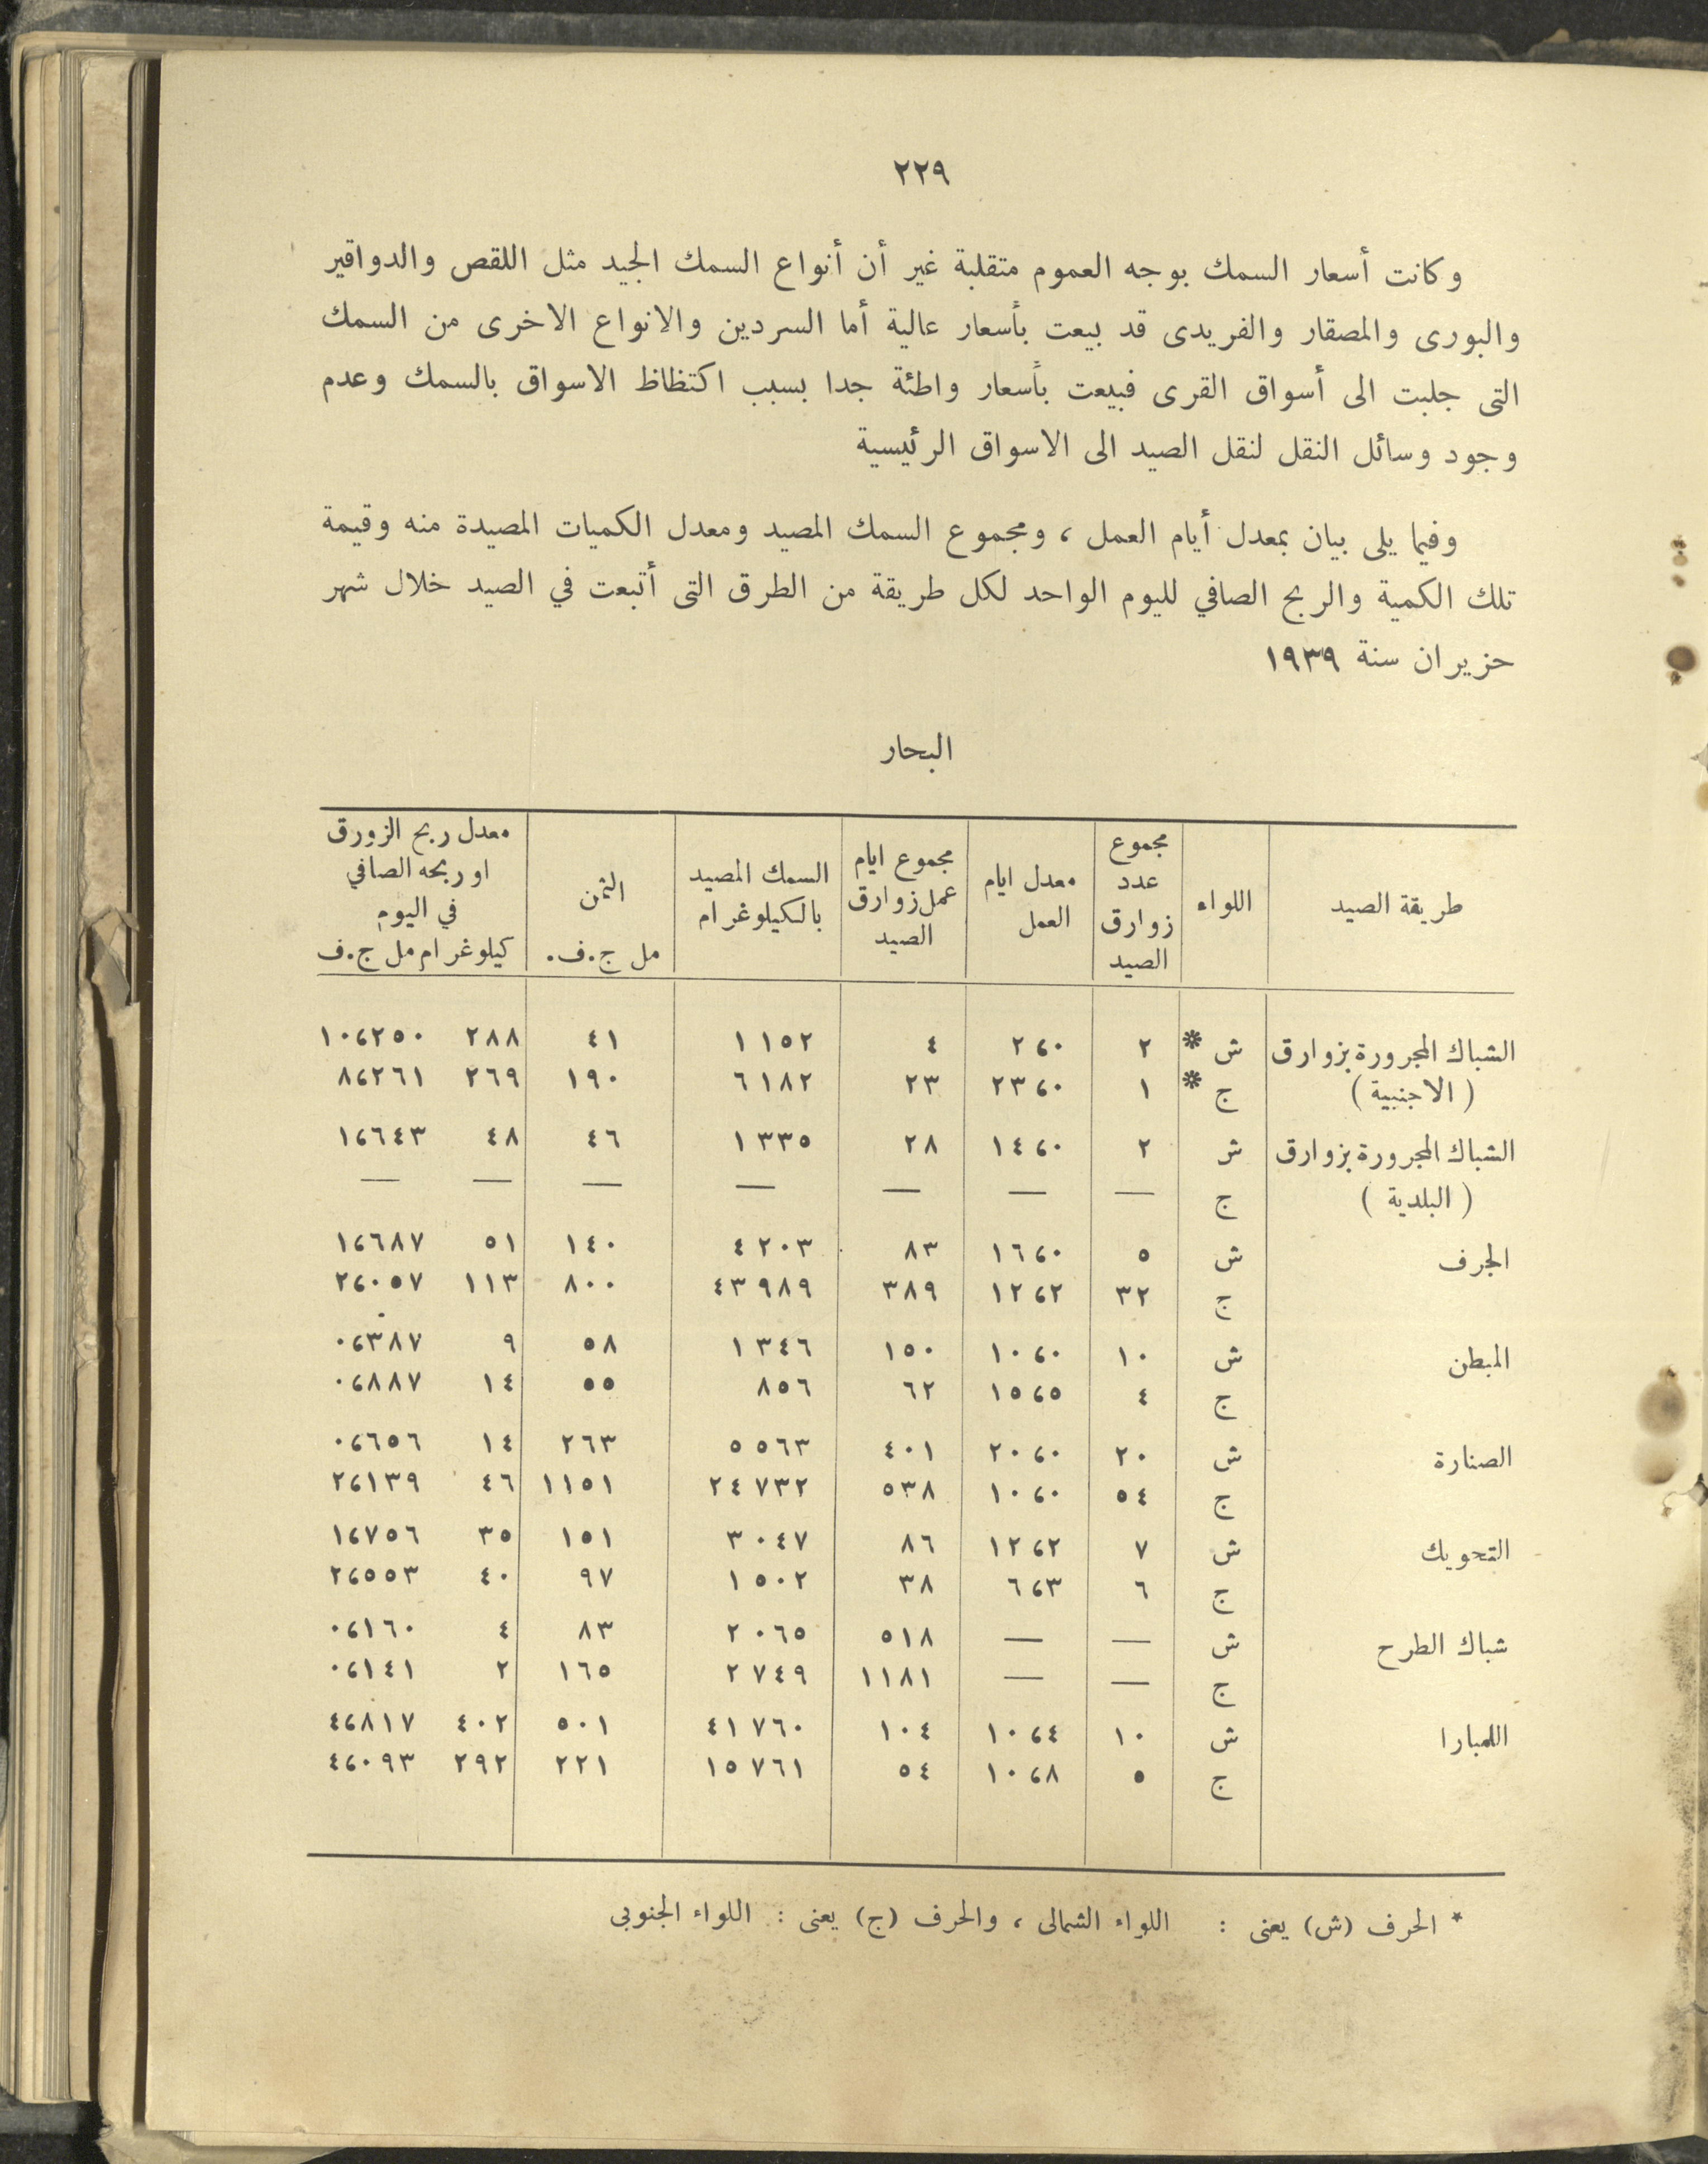 ٢٢٩
وكانت أسعار السمك بوجه العموم متقلبة غير أن أنواع السمك الجيد مثل اللقص والدواقير
والبورى والمصقار والفريدى قد بيعت بأسعار عالية أما السردين والانواع الاخرى من السمك
التى جلبت الى أسواق القرى فبيعت بأسعار واطئة جدا بسبب اكتظاظ الاسواق بالسمك وعدم
وجود وسائل النقل لنقل الصيد الى الاسواق الرئيسية
وفيما يلى بيان بمعدل أيام العمل ، ومجموع السمك المصيد ومعدل الكميات المصيدة منه وقيمة
تلك الكمية والربح الصافي لليوم الواحد لكل طريقة من الطرق التى أتبعت في الصيد خلال شهر
حزيران سنة ١٩٣٩
البحار
طريقة الصيد | اللواء | مجموع عدد زوارق الصيد | معدل ايام العمل | مجموع ايام عمل زوارق الصيد | السمك المصيد بالكيلوغرام | الثمن مل ج.ف. | معدل ربح الزورق او ربحه الصافي في اليوم كيلوغرام مل ج.ف
الشباك المجرورة بزوارق ش * ٢ ٢،٠ ٤ ١١٥٢ ٤١ ٢٨٨ ١٠،٢٥٠
(الاجنبية) ج * ١ ٢٣،٠ ٢٣ ٦١٨٢ ١٩٠ ٢٦٩ ٨،٢٦١
الشباك المجرورة بزوارق ش ٢ ١٤،٠ ٢٨ ١٣٣٥ ٤٦ ٤٨ ١،٦٤٣
(البلدية) ج — — — — — — —
الجرف ش ٥ ١٦،٠ ٨٣ ٤٢٠٣ ١٤٠ ٥١ ١،٦٨٧
ج ٣٢ ١٢،٢ ٣٨٩ ٤٣٩٨٩ ٨٠٠ ١١٣ ٢،٠٥٧
المبطن ش ١٠ ١٠،٠ ١٥٠ ١٣٤٦ ٥٨ ٩ ٠،٣٨٧
ج ٤ ١٥،٥ ٦٢ ٨٥٦ ٥٥ ١٤ ٠،٨٨٧
الصنارة ش ٢٠ ٢٠،٠ ٤٠١ ٥٥٦٣ ٢٦٣ ١٤ ٠،٦٥٦
ج ٥٤ ١٠،٠ ٥٣٨ ٢٤٧٣٢ ١١٥١ ٤٦ ٢،١٣٩
التحويك ش ٧ ١٢،٢ ٨٦ ٣٠٤٧ ١٥١ ٣٥ ١،٧٥٦
ج ٦ ٦،٣ ٣٨ ١٥٠٢ ٩٧ ٤٠ ٢،٥٥٣
شباك الطرح ش — — ٥١٨ ٢٠٦٥ ٨٣ ٤ ٠،١٦٠
ج — — ١١٨١ ٢٧٤٩ ١٦٥ ٢ ٠،١٤١
اللمبارا ش ١٠ ١٠،٤ ١٠٤ ٤١٧٦٠ ٥٠١ ٤٠٢ ٤،٨١٧
ج ٥ ١٠،٨ ٥٤ ١٥٧٦١ ٢٢١ ٢٩٢ ٤،٠٩٣
* الحرف (ش) يعنى : اللواء الشمالى ، والحرف (ج) يعنى : اللواء الجنوبى